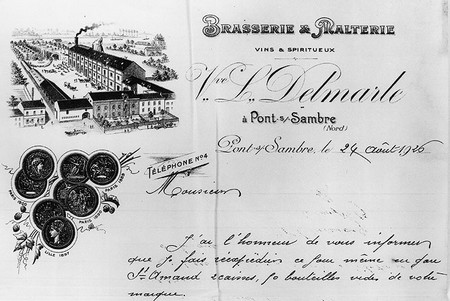 BRASSERIE & MALTERIE
VINS & SPIRITUEUX
Vve L. Delmarle
à Pont-s/-Sambre
(Nord)
TÉLÉPHONE No 4
Pont-s/-Sambre, le 24 Août 1926
Monsieur
J'ai l'honneur de vous informer
que je fais réexpédier ce jour même en gare
St Amand 2 caisses, 50 bouteilles vides de votre
marque
PARIS
PARIS
LILLE 1897